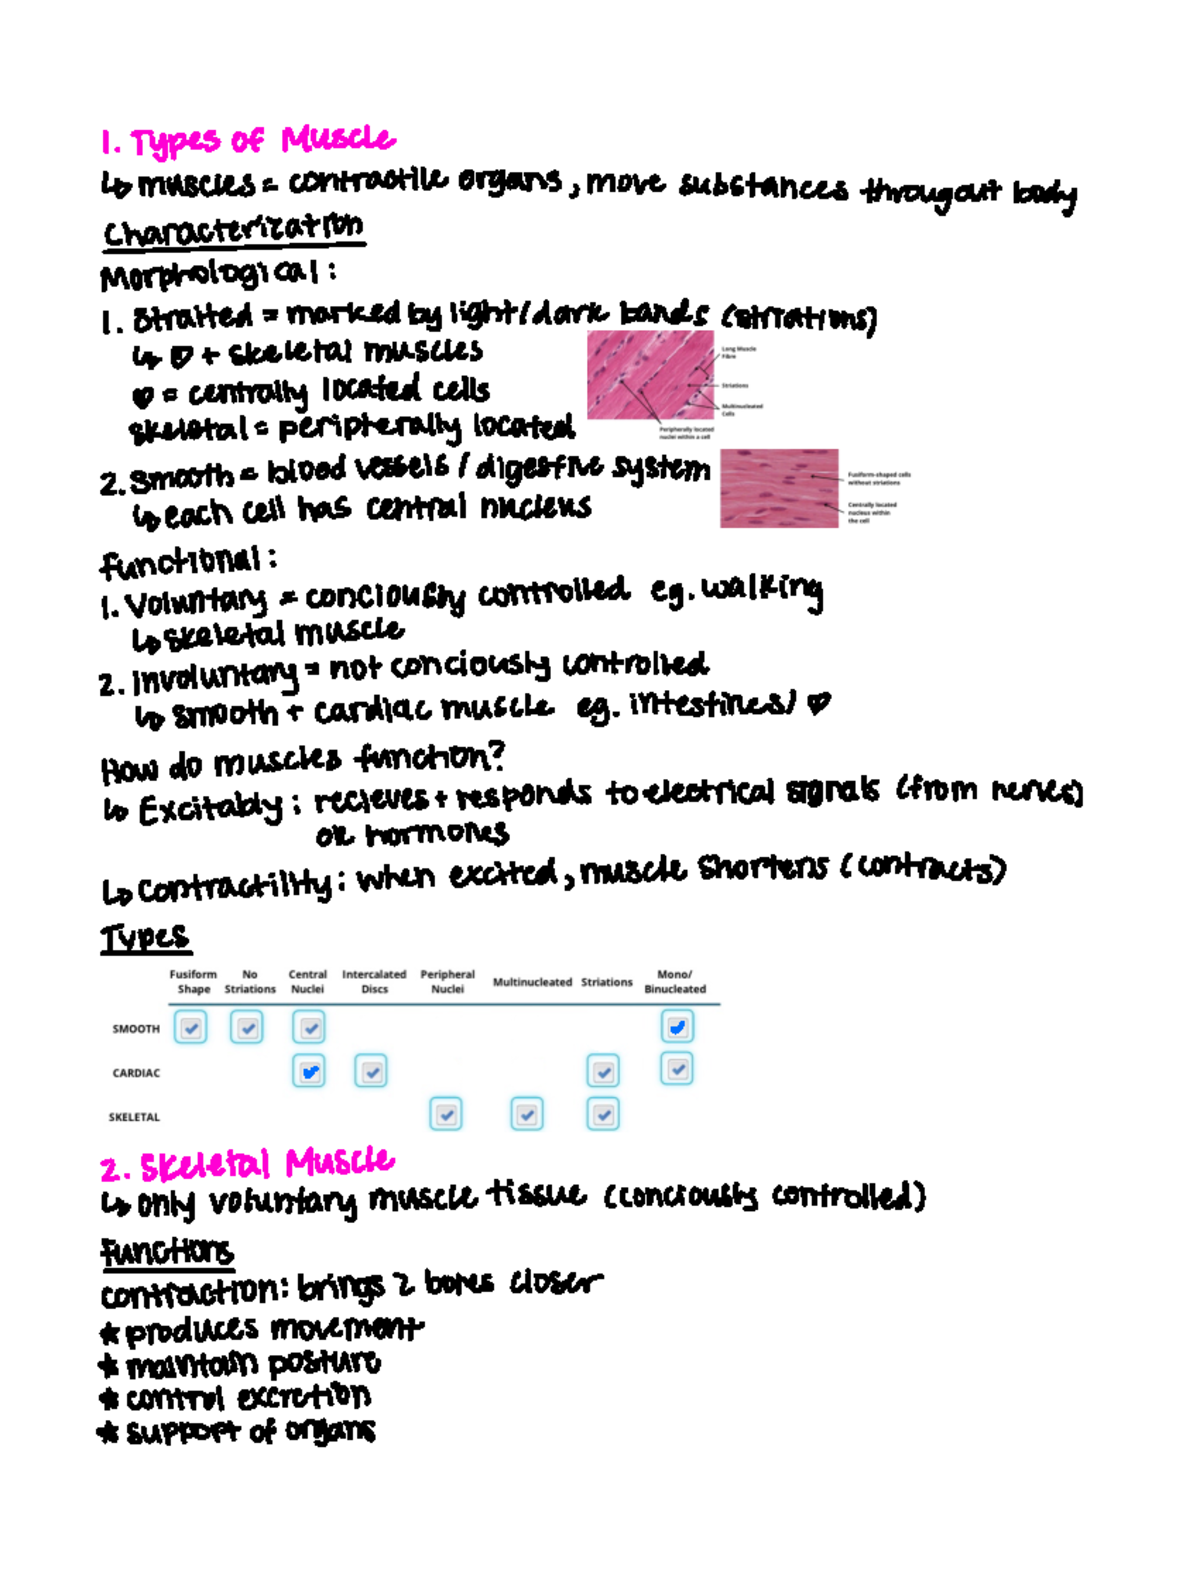 1. Types of Muscle
↳ muscles = contractile organs, move substances througout body
Characterization
Morphological:
1. Straited = marked by light/dark bands (striations)
↳ ♡ + skeletal muscles
♡ = centrally located cells
skeletal = peripherally located
Long Muscle
Fibre
Striations
Multinucleated
Cells
Peripherally located
nuclei within a cell
2. Smooth = blood vessels / digestive system
↳ each cell has central nucleus
Fusiform-shaped cells
without striations
Centrally located
nucleus within
the cell
Functional:
1. Voluntary = conciously controlled eg. walking
↳ skeletal muscle
2. Involuntary = not conciously controlled
↳ smooth + cardiac muscle eg. intestines/ ♡
How do muscles function?
↳ Excitably: recieves + responds to electrical signals (from nerves)
or hormones
↳ Contractility: when excited, muscle shortens (contracts)
Types
Fusiform Shape No Striations Central Nuclei Intercalated Discs Peripheral Nuclei Multinucleated Striations Mono/ Binucleated
SMOOTH ✓ ✓ ✓ ✓
CARDIAC ✓ ✓ ✓ ✓
SKELETAL ✓ ✓ ✓
2. Skeletal Muscle
↳ only voluntary muscle tissue (conciously controlled)
Functions
contraction: brings 2 bones closer
* produces movement
* maintain posture
* control excretion
* support of organs